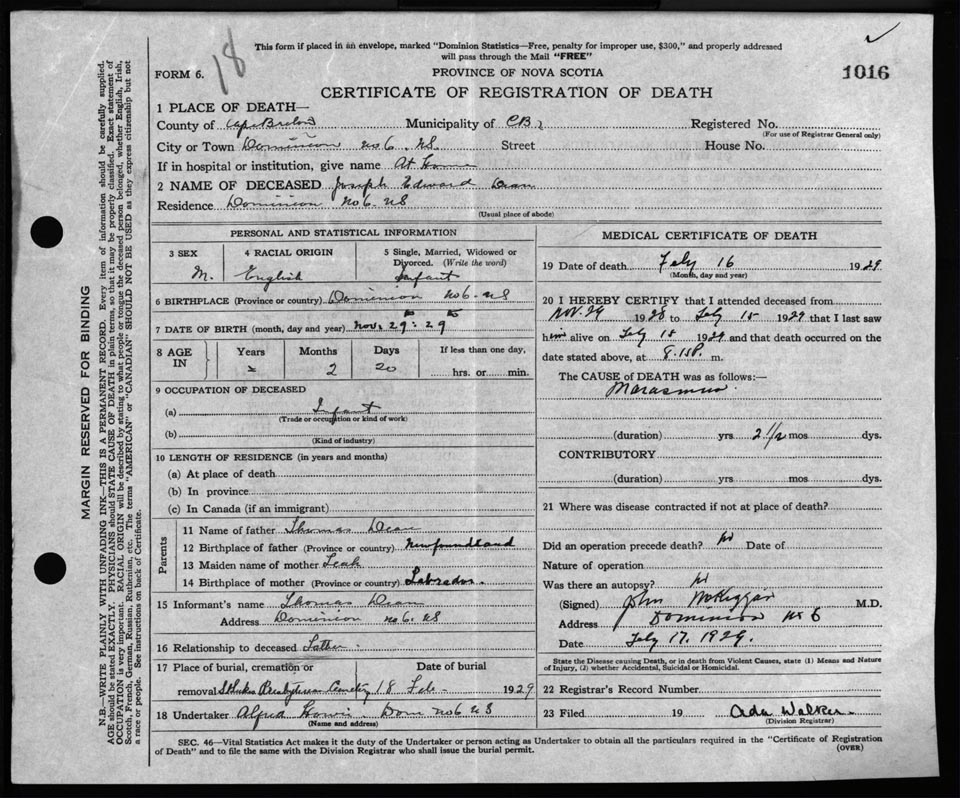 18
This form if placed in an envelope, marked "Dominion Statistics—Free, penalty for improper use, $300," and properly addressed
will pass through the Mail "FREE"
FORM 6.
PROVINCE OF NOVA SCOTIA
1016
CERTIFICATE OF REGISTRATION OF DEATH
1 PLACE OF DEATH—
County of Cape Breton Municipality of CB Registered No.
(For use of Registrar General only)
City or Town Dominion No 6. NS Street House No.
If in hospital or institution, give name At Home
2 NAME OF DECEASED Joseph Edward Dean
Residence Dominion No 6. NS
(Usual place of abode)
PERSONAL AND STATISTICAL INFORMATION
3 SEX 4 RACIAL ORIGIN 5 Single, Married, Widowed or
Divorced. (Write the word)
M. English Infant
6 BIRTHPLACE (Province or country) Dominion No 6. NS
7 DATE OF BIRTH (month, day and year) Nov. 29: 28
8 AGE IN Years Months Days If less than one day,
2 20 hrs. or min.
9 OCCUPATION OF DECEASED
(a) Infant
(Trade or occupation or kind of work)
(b)
(Kind of industry)
10 LENGTH OF RESIDENCE (in years and months)
(a) At place of death
(b) In province
(c) In Canada (if an immigrant)
Parents
11 Name of father Thomas Dean
12 Birthplace of father (Province or country) Newfoundland
13 Maiden name of mother Leah
14 Birthplace of mother (Province or country) Labrador.
15 Informant's name Thomas Dean
Address Dominion No 6. NS
16 Relationship to deceased Father
17 Place of burial, cremation or Date of burial
removal St Lukes Presbyterian Cemetery 18 Feb 1929
18 Undertaker Alfred Dom No 6 NS
(Name and address)
MEDICAL CERTIFICATE OF DEATH
19 Date of death Feby 16 1929
(Month, day and year)
20 I HEREBY CERTIFY that I attended deceased from
Nov. 29 1928 to Feby 15 1929 that I last saw
him alive on Feby 15 1929 and that death occurred on the
date stated above, at 8.15P. m.
The CAUSE of DEATH was as follows:—
Marasmus
(duration) yrs 2 1/2 mos dys.
CONTRIBUTORY
(duration) yrs. mos dys.
21 Where was disease contracted if not at place of death?
Did an operation precede death? No Date of
Nature of operation
Was there an autopsy? No
(Signed) John McKiggan M.D.
Address Dominion No 6
Date Feby 17. 1929.
State the Disease causing Death, or in death from Violent Causes, state (1) Means and Nature
of Injury, (2) whether Accidental, Suicidal or Homicidal.
22 Registrar's Record Number
23 Filed 19 Ada Walker
(Division Registrar)
SEC. 46—Vital Statistics Act makes it the duty of the Undertaker or person acting as Undertaker to obtain all the particulars required in the "Certificate of Registration
of Death" and to file the same with the Division Registrar who shall issue the burial permit.
(OVER)
MARGIN RESERVED FOR BINDING
N.B.—WRITE PLAINLY WITH UNFADING INK—THIS IS A PERMANENT RECORD. Every item of information should be carefully supplied.
AGE should be stated EXACTLY. PHYSICIANS should STATE CAUSE OF DEATH in plain terms, so that it may be properly classified. Exact statement of
OCCUPATION is very important. RACIAL ORIGIN will be described by stating to what people or tongue the deceased person belonged, whether English, Irish,
Scotch, French, German, Russian, Ruthenian, etc. The terms "AMERICAN" or "CANADIAN" SHOULD NOT BE USED as they express citizenship but not
a race or people. See instructions on back of Certificate.